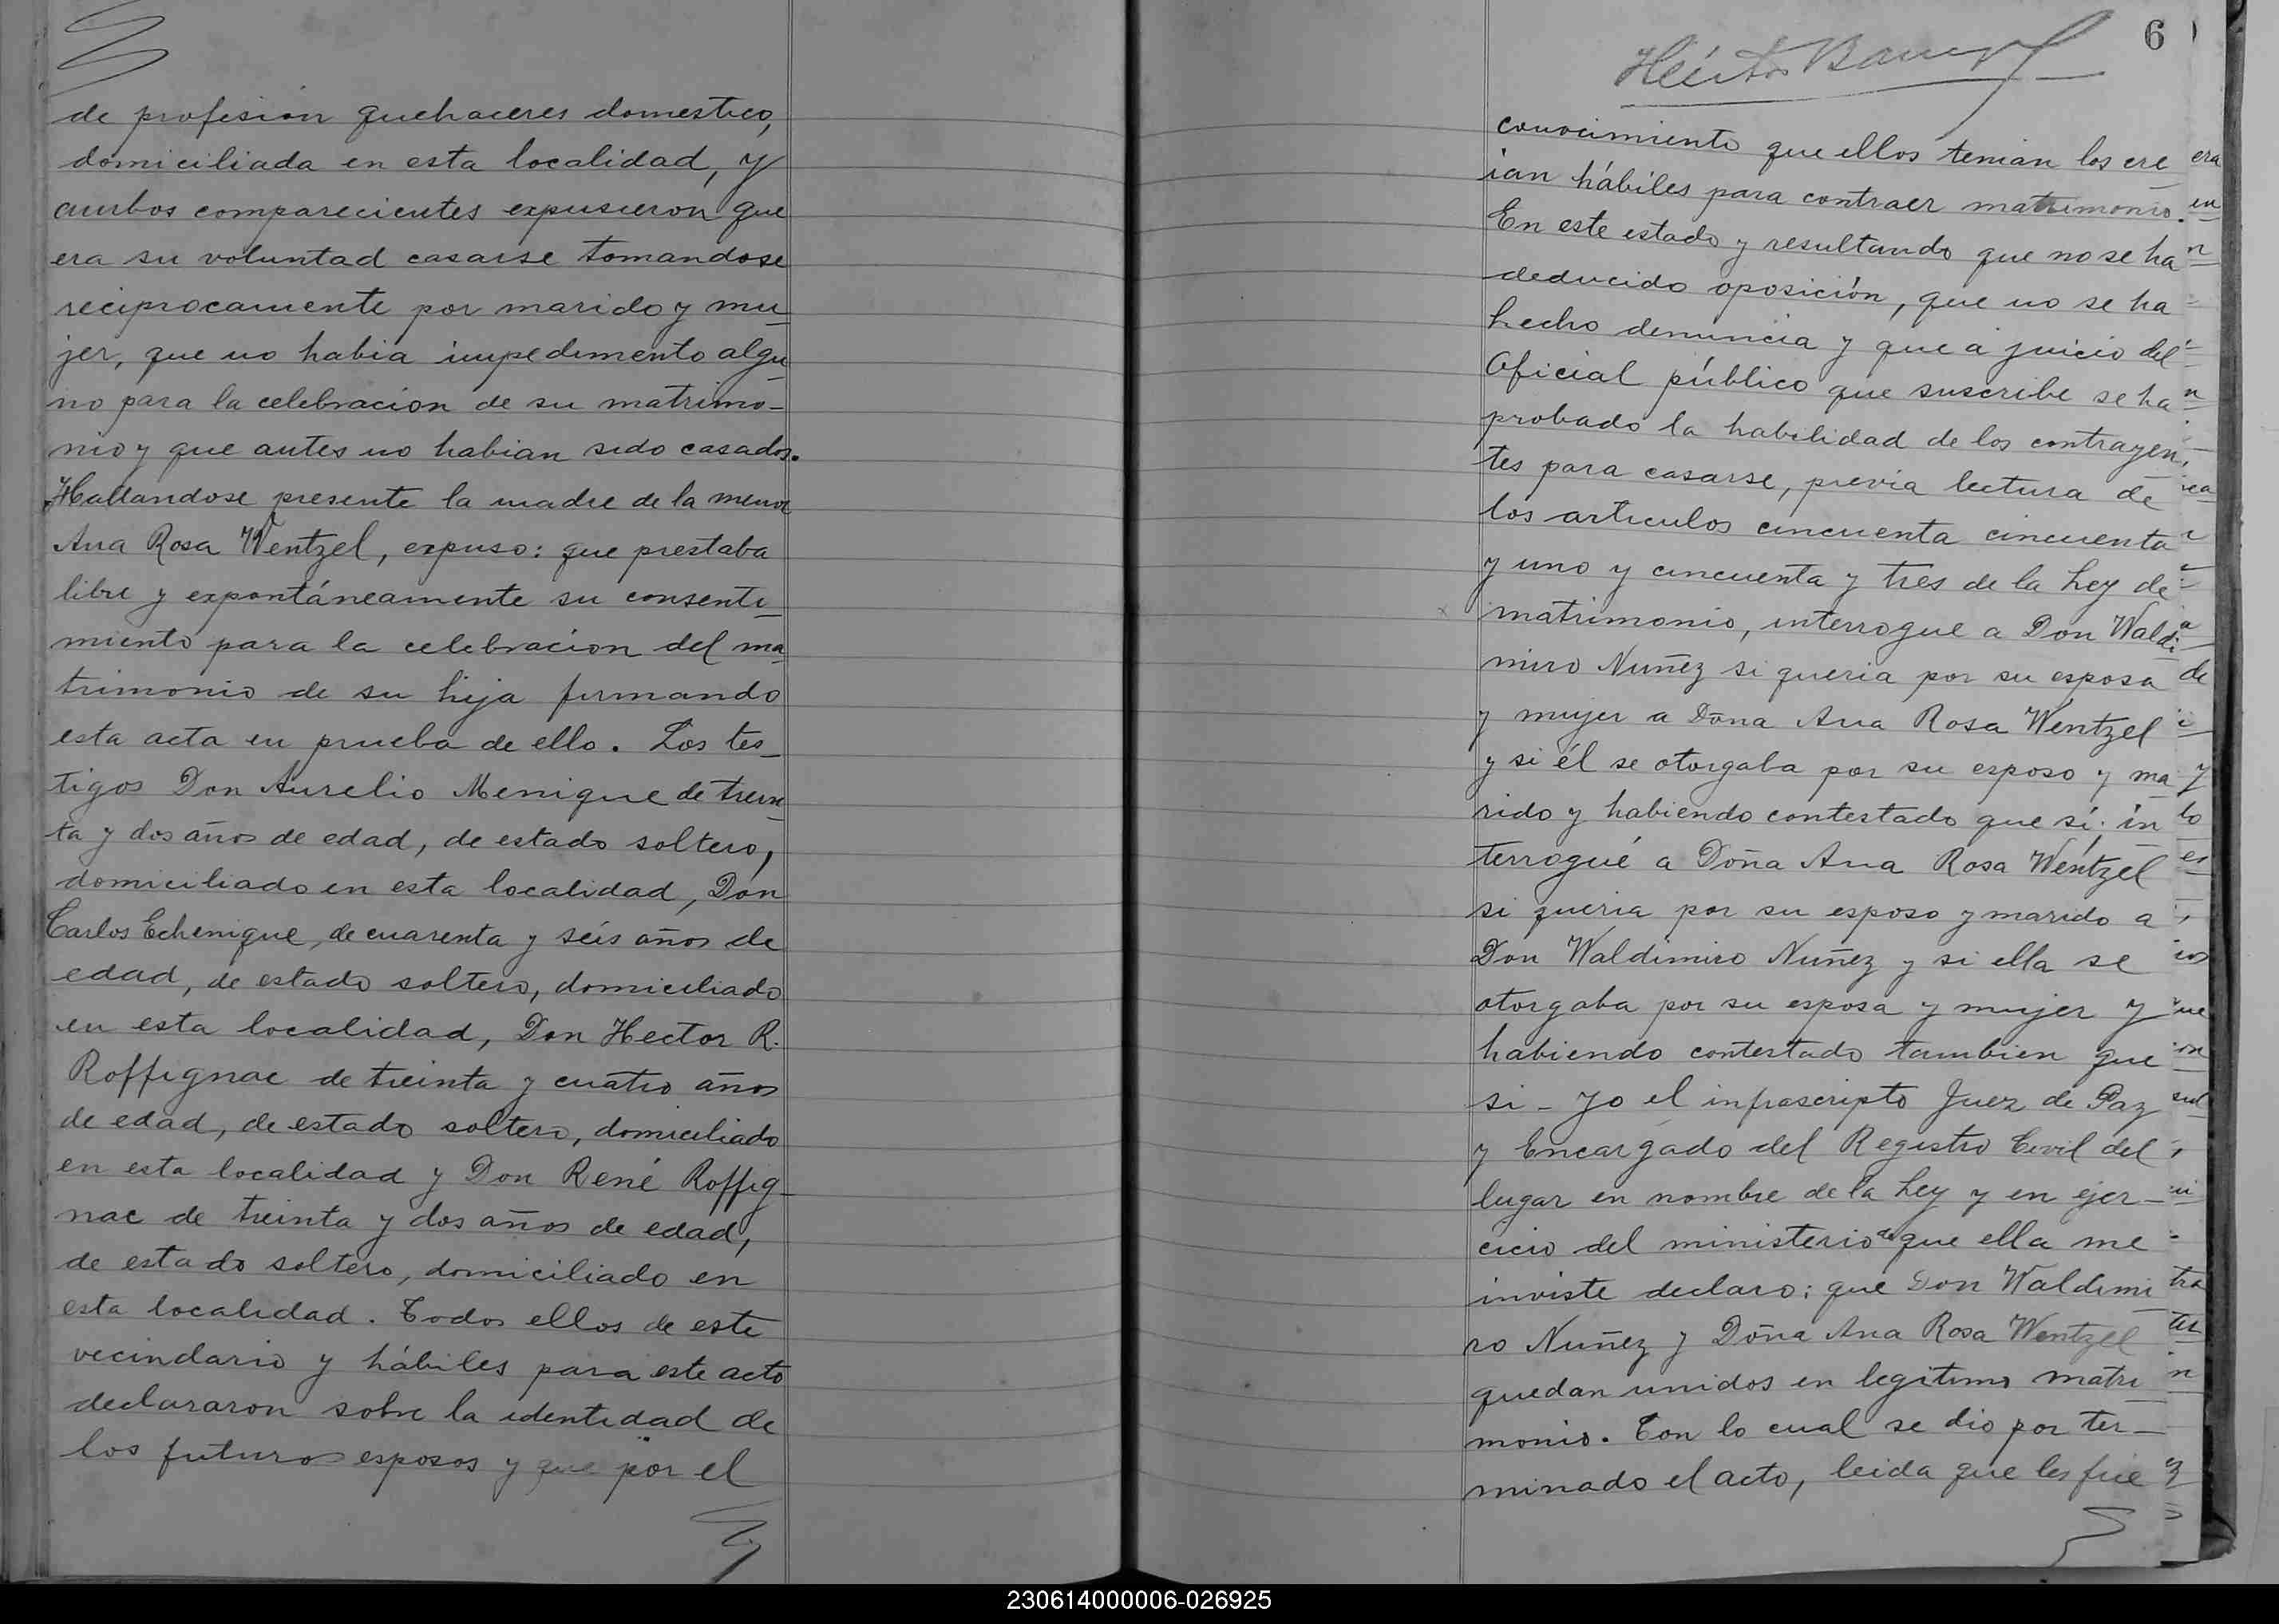 de profesión quehaceres domestico,
domiciliada en esta localidad, y
ambos comparecientes expusieron que
era su voluntad casarse tomandose
reciprocamente por marido y mu
jer, que no habia impedimento algu
no para la celebracion de su matrimo-
nio y que antes no habian sido casados.
Hallandose presente la madre de la menor
Ana Rosa Wentzel, expuso: que prestaba
libre y expontáneamente su consenti_
miento para la celebracion del ma
trimonio de su hija firmando
esta acta en prueba de ello. Los tes_
tigos Don Aurelio Menique de trein
ta y dos años de edad, de estado soltero,
domiciliado en esta localidad, Don
Carlos Echenique, de cuarenta y seis años de
edad, de estado soltero, domiciliado
en esta localidad, Don Hector R.
Roffignac de treinta y cuatro años
de edad, de estado soltero, domiciliado
en esta localidad y Don René Roffig-
nac de treinta y dos años de edad,
de estado soltero, domiciliado en
esta localidad. Todos ellos de este
vecindario y hábiles para este acto
declararon sobre la identidad de
los futuros esposos y que por el
6
Héctor
conocimiento que ellos tenian los cre
ian hábiles para contraer matrimonio.
En este estado y resultando que no se ha
deducido oposición, que no se ha
hecho denuncia y que a juicio del
Oficial público que suscribe se ha
probado la habilidad de los contrayen
tes para casarse, previa lectura de
los articulos cincuenta cincuenta
y uno y cincuenta y tres de la Ley de
matrimonio, interrogue a Don Waldi
miro Nuñez si queria por su esposa
y mujer a Doña Ana Rosa Wentzel
y si él se otorgaba por su esposo y ma
rido y habiendo contestado que sí; in
terrogué a Doña Ana Rosa Wentzel
si queria por su esposo y marido a
Don Waldimiro Nuñez y si ella se
otorgaba por su esposa y mujer y
habiendo contestado tambien que
si - Yo el infrascripto Juez de Paz
y Encargado del Registro Civil del
lugar en nombre de la Ley y en ejer-
cicio del ministerio de que ella me
inviste declaro: que Don Waldimi
ro Nuñez y Doña Ana Rosa Wentzel
quedan unidos en legitimo matri
monio. Con lo cual se dio por ter-
minado el acto, leida que les fue
230614000006-026925